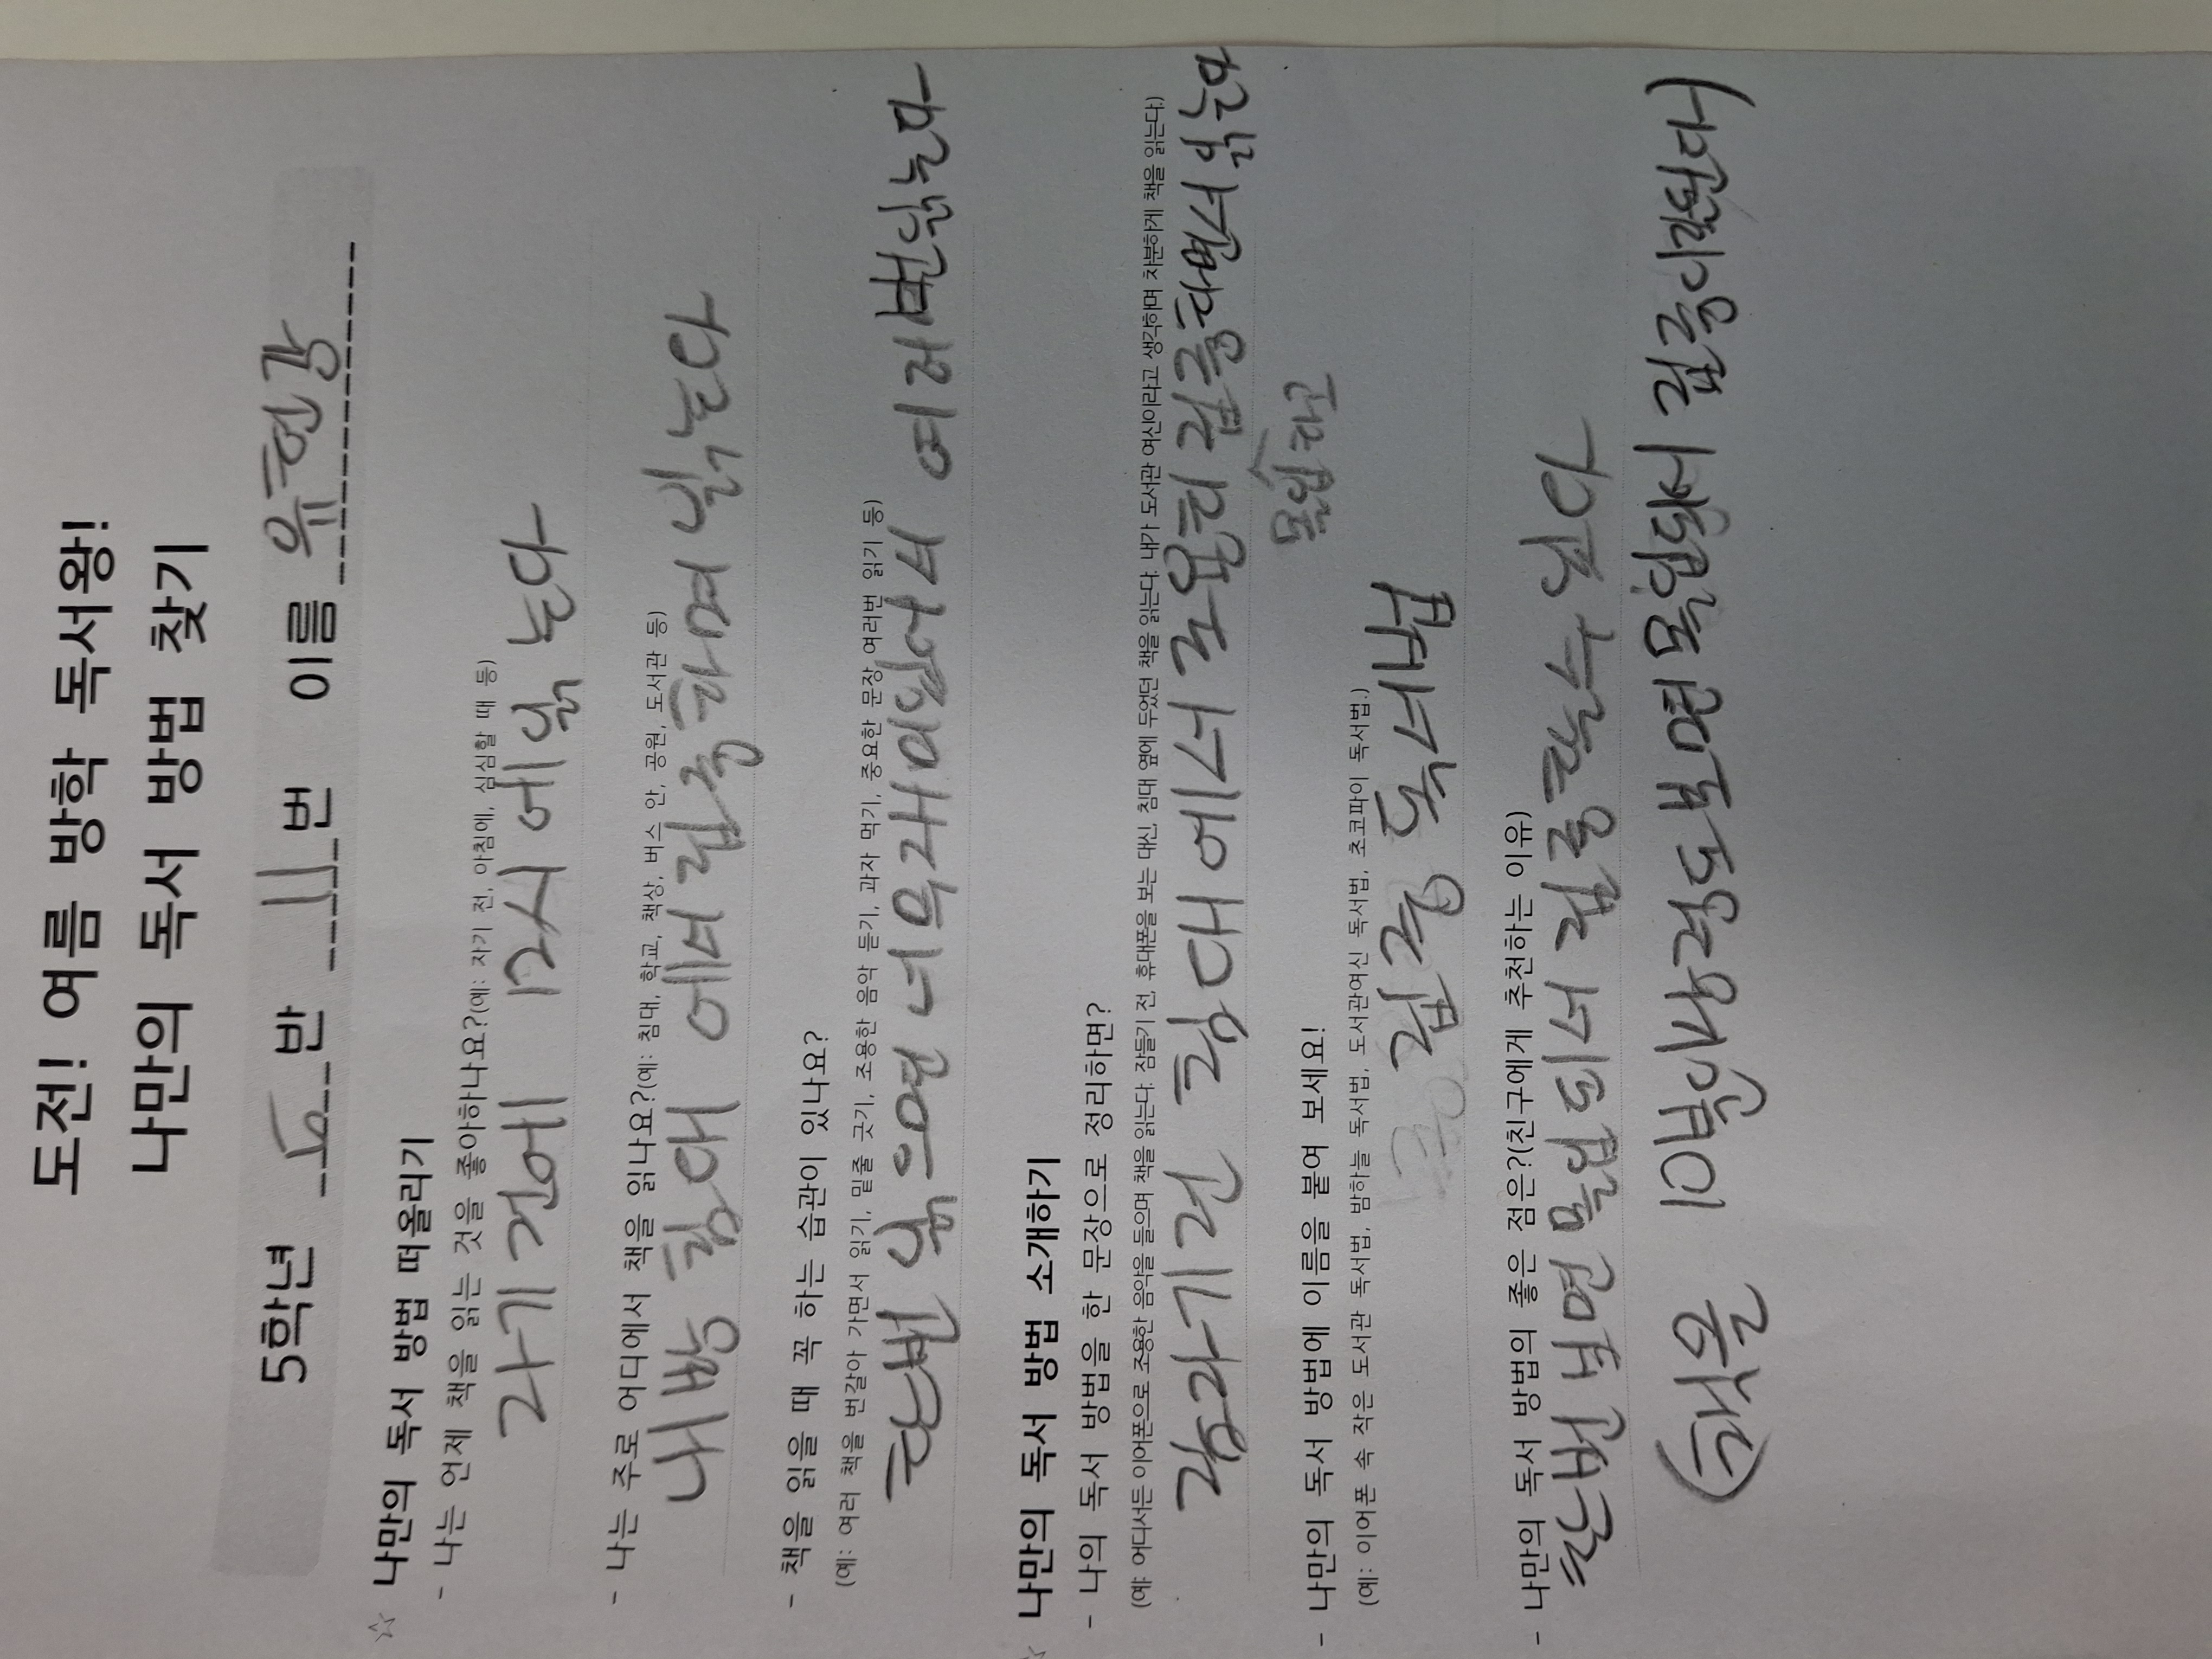 도전! 여름 방학 독서왕!
나만의 독서 방법 찾기
5학년 5 반 11 번 이름 유현강
☆ 나만의 독서 방법 떠올리기
- 나는 언제 책을 읽는 것을 좋아하나요?(예: 자기 전, 아침에, 심심할 때 등)
자기 전에 12시에 읽는다
- 나는 주로 어디에서 책을 읽나요?(예: 침대, 학교, 책상, 버스 안, 공원, 도서관 등)
내 방 침대에서 집중하며 읽는다
- 책을 읽을 때 꼭 하는 습관이 있나요?
(예: 여러 책을 번갈아 가면서 읽기, 밑줄 긋기, 조용한 음악 듣기, 과자 먹기, 중요한 문장 여러번 읽기 등)
한번 읽으면 너무재미있어서 여러번읽는다
☆ 나만의 독서 방법 소개하기
- 나의 독서 방법을 한 문장으로 정리하면?
(예: 어디서든 이어폰으로 조용한 음악을 들으며 책을 읽는다. 잠들기 전, 휴대폰을 보는 대신, 침대 옆에 두었던 책을 읽는다. 내가 도서관 여신이라고 생각하며 차분하게 책을 읽는다.)
잠자기전 침대에서 조용히 집중하면서 읽는다
몰입하고
- 나만의 독서 방법에 이름을 붙여 보세요!
(예: 이어폰 속 작은 도서관 독서법, 밤하늘 독서법, 도서관여신 독서법, 초코파이 독서법.)
집중 독서법
- 나만의 독서 방법의 좋은 점은?(친구에게 추천하는 이유)
한번 보면 몰입되서 집중할수 있다
(책을 10분이상정도보면몰입돼서 집중이잘된다)